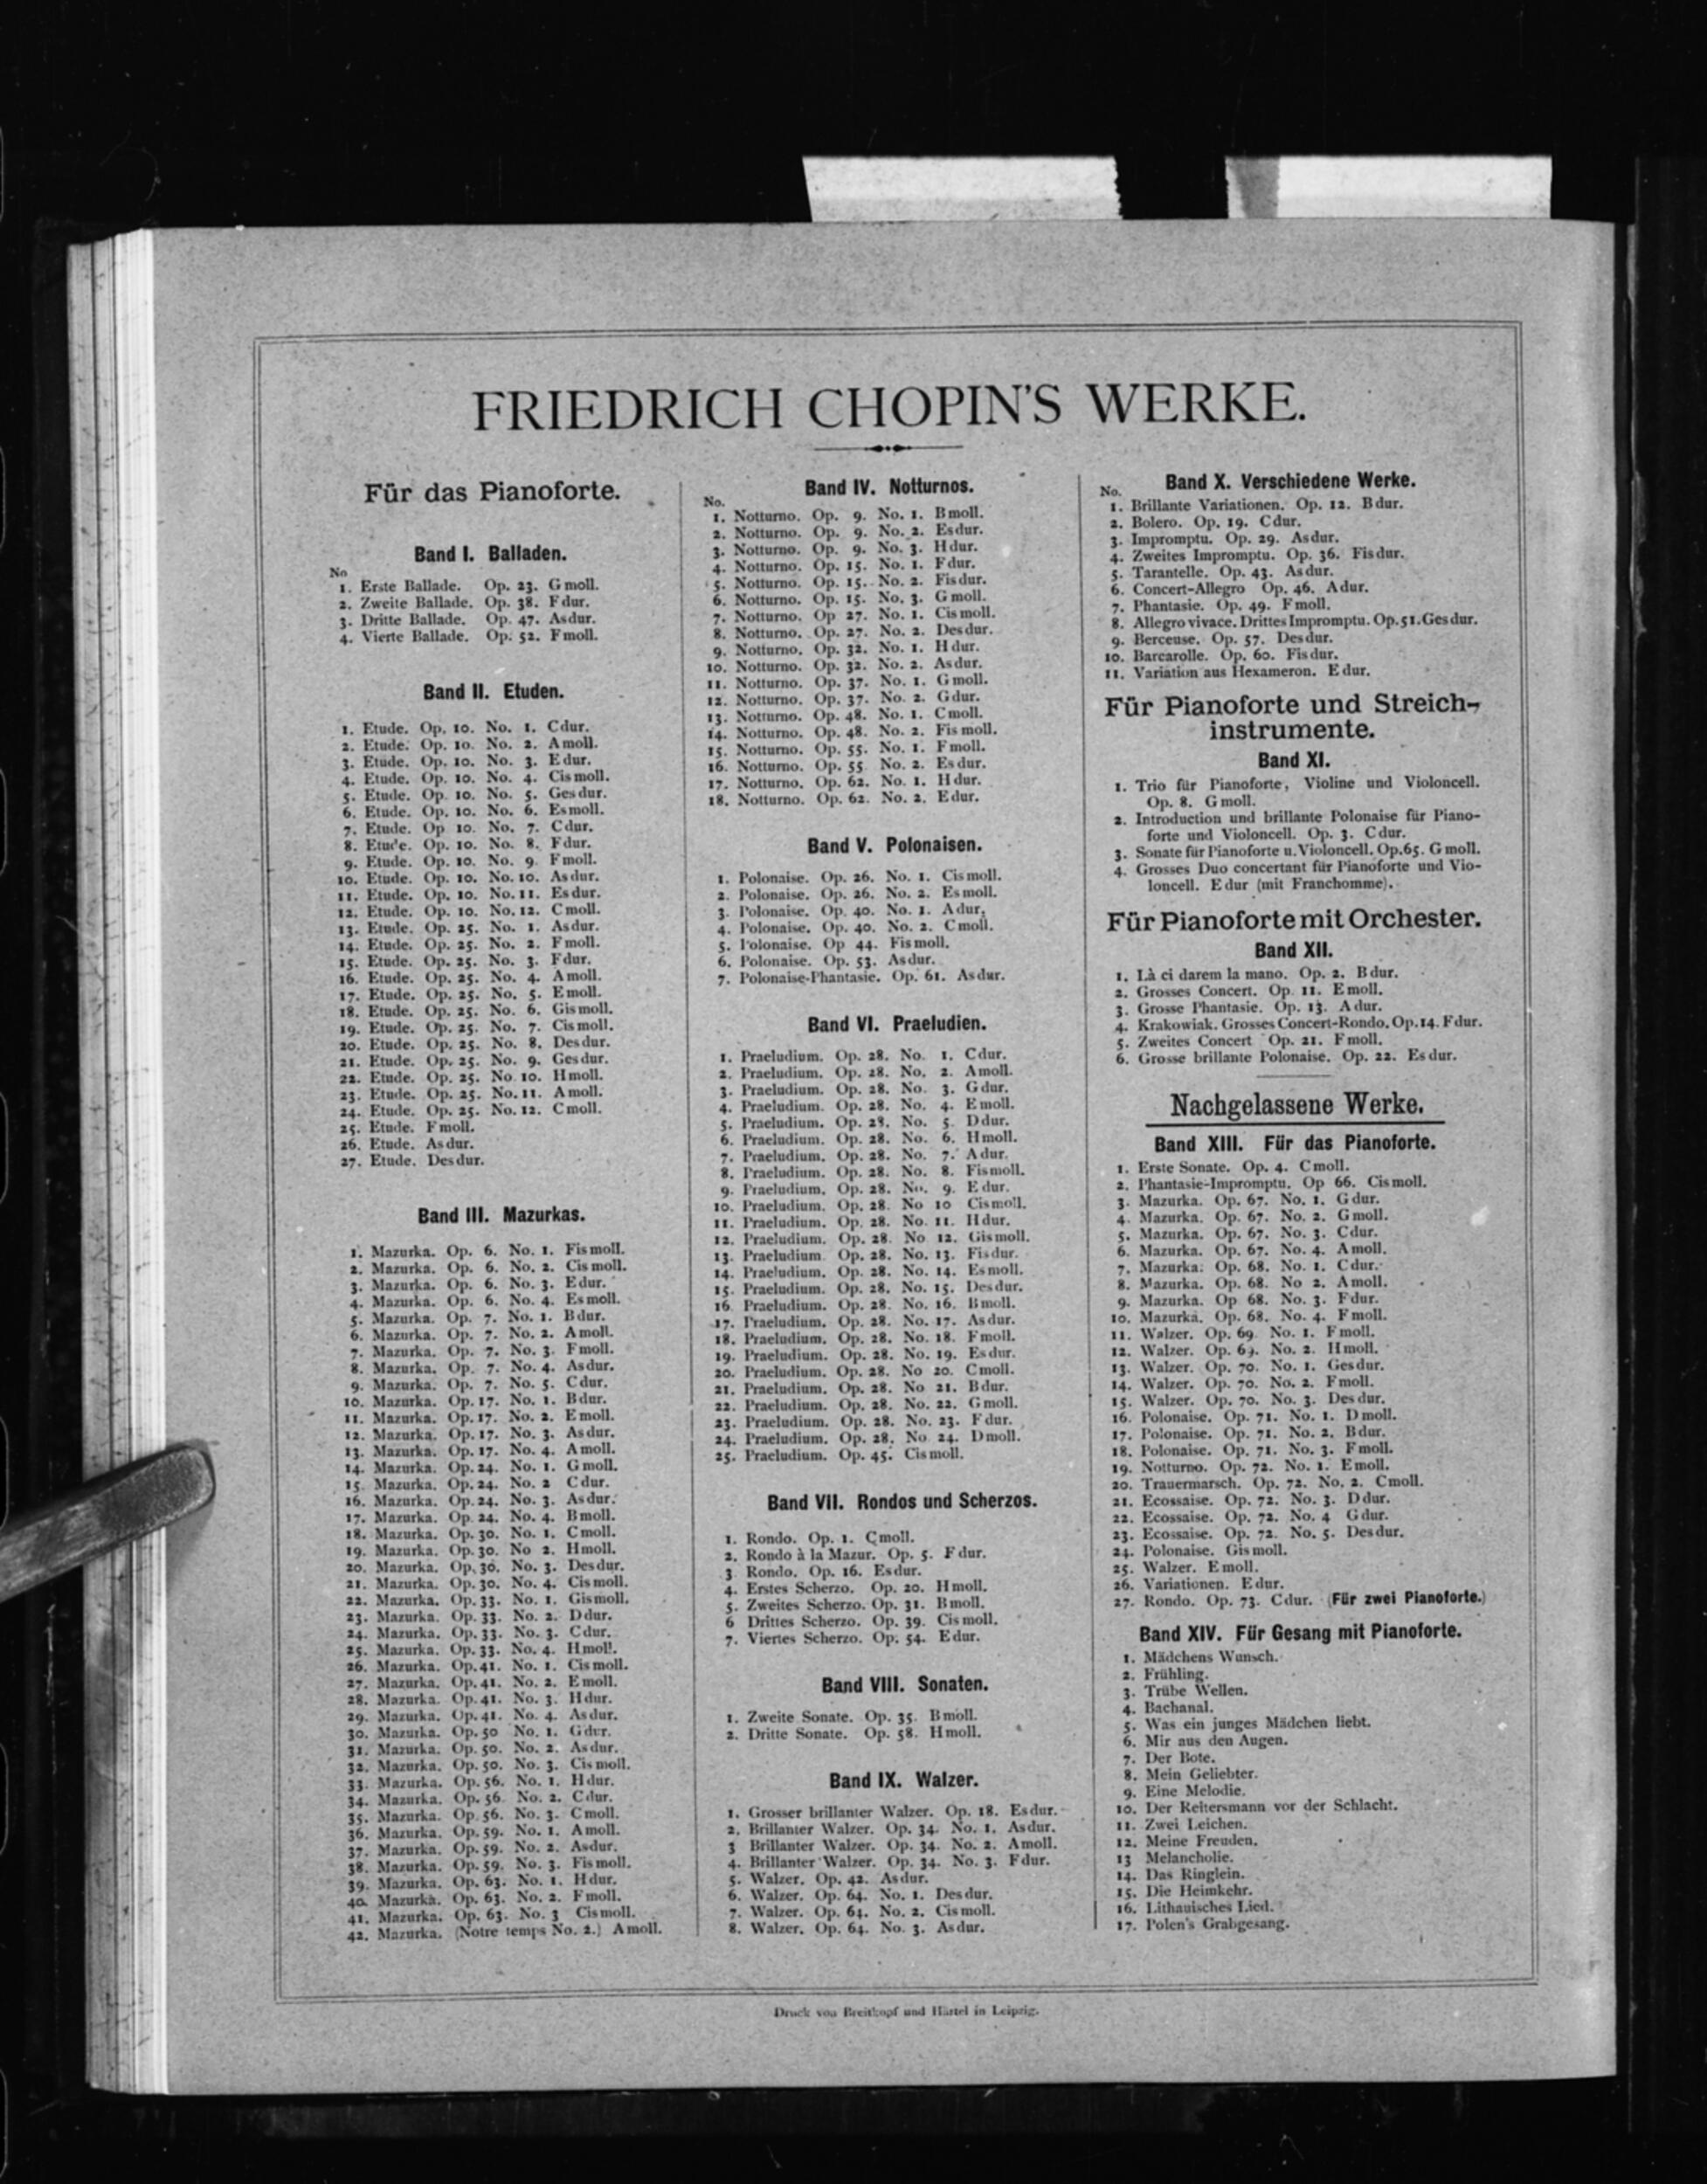 FRIEDRICH CHOPIN'S WERKE.
Für das Pianoforte.
Band I. Balladen.
No
1. Erste Ballade. Op. 23. G moll.
2. Zweite Ballade. Op. 38. F dur.
3. Dritte Ballade. Op. 47. As dur.
4. Vierte Ballade. Op. 52. F moll.
Band II. Etuden.
1. Etude. Op. 10. No. 1. C dur.
2. Etude. Op. 10. No. 2. A moll.
3. Etude. Op. 10. No. 3. E dur.
4. Etude. Op. 10. No. 4. Cis moll.
5. Etude. Op. 10. No. 5. Ges dur.
6. Etude. Op. 10. No. 6. Es moll.
7. Etude. Op 10. No. 7. C dur.
8. Etude. Op. 10. No. 8. F dur.
9. Etude. Op. 10. No. 9. F moll.
10. Etude. Op. 10. No. 10. As dur.
11. Etude. Op. 10. No. 11. Es dur.
12. Etude. Op. 10. No. 12. C moll.
13. Etude. Op. 25. No. 1. As dur.
14. Etude. Op. 25. No. 2. F moll.
15. Etude. Op. 25. No. 3. F dur.
16. Etude. Op. 25. No. 4. A moll.
17. Etude. Op. 25. No. 5. E moll.
18. Etude. Op. 25. No. 6. Gis moll.
19. Etude. Op. 25. No. 7. Cis moll.
20. Etude. Op. 25. No. 8. Des dur.
21. Etude. Op. 25. No. 9. Ges dur.
22. Etude. Op. 25. No 10. H moll.
23. Etude. Op. 25. No. 11. A moll.
24. Etude. Op. 25. No. 12. C moll.
25. Etude. F moll.
26. Etude. As dur.
27. Etude. Des dur.
Band III. Mazurkas.
1. Mazurka. Op. 6. No. 1. Fis moll.
2. Mazurka. Op. 6. No. 2. Cis moll.
3. Mazurka. Op. 6. No. 3. E dur.
4. Mazurka. Op. 6. No. 4. Es moll.
5. Mazurka. Op. 7. No. 1. B dur.
6. Mazurka. Op. 7. No. 2. A moll.
7. Mazurka. Op. 7. No. 3. F moll.
8. Mazurka. Op. 7. No. 4. As dur.
9. Mazurka. Op. 7. No. 5. C dur.
10. Mazurka. Op. 17. No. 1. B dur.
11. Mazurka. Op. 17. No. 2. E moll.
12. Mazurka. Op. 17. No. 3. As dur.
13. Mazurka. Op. 17. No. 4. A moll.
14. Mazurka. Op. 24. No. 1. G moll.
15. Mazurka. Op. 24. No. 2 C dur.
16. Mazurka. Op. 24. No. 3. As dur.
17. Mazurka. Op. 24. No. 4. B moll.
18. Mazurka. Op. 30. No. 1. C moll.
19. Mazurka. Op. 30. No 2. H moll.
20. Mazurka. Op. 30. No. 3. Des dur.
21. Mazurka. Op. 30. No. 4. Cis moll.
22. Mazurka. Op. 33. No. 1. Gis moll.
23. Mazurka. Op. 33. No. 2. D dur.
24. Mazurka. Op. 33. No. 3. C dur.
25. Mazurka. Op. 33. No. 4. H moll.
26. Mazurka. Op. 41. No. 1. Cis moll.
27. Mazurka. Op. 41. No. 2. E moll.
28. Mazurka. Op. 41. No. 3. H dur.
29. Mazurka. Op. 41. No. 4. As dur.
30. Mazurka. Op. 50 No. 1. G dur.
31. Mazurka. Op. 50. No. 2. As dur.
32. Mazurka. Op. 50. No. 3. Cis moll.
33. Mazurka. Op. 56. No. 1. H dur.
34. Mazurka. Op. 56. No. 2. C dur.
35. Mazurka. Op. 56. No. 3. C moll.
36. Mazurka. Op. 59. No. 1. A moll.
37. Mazurka. Op. 59. No. 2. As dur.
38. Mazurka. Op. 59. No. 3. Fis moll.
39. Mazurka. Op. 63. No. 1. H dur.
40. Mazurka. Op. 63. No. 2. F moll.
41. Mazurka. Op. 63. No. 3 Cis moll.
42. Mazurka. (Notre temps No. 2.) A moll.
Band IV. Notturnos.
No.
1. Notturno. Op. 9. No. 1. B moll.
2. Notturno. Op. 9. No. 2. Es dur.
3. Notturno. Op. 9. No. 3. H dur.
4. Notturno. Op. 15. No. 1. F dur.
5. Notturno. Op. 15. No. 2. Fis dur.
6. Notturno. Op. 15. No. 3. G moll.
7. Notturno. Op 27. No. 1. Cis moll.
8. Notturno. Op. 27. No. 2. Des dur.
9. Notturno. Op. 32. No. 1. H dur.
10. Notturno. Op. 32. No. 2. As dur.
11. Notturno. Op. 37. No. 1. G moll.
12. Notturno. Op. 37. No. 2. G dur.
13. Notturno. Op. 48. No. 1. C moll.
14. Notturno. Op. 48. No. 2. Fis moll.
15. Notturno. Op. 55. No. 1. F moll.
16. Notturno. Op. 55 No. 2. Es dur.
17. Notturno. Op. 62. No. 1. H dur.
18. Notturno. Op. 62. No. 2. E dur.
Band V. Polonaisen.
1. Polonaise. Op. 26. No. 1. Cis moll.
2. Polonaise. Op. 26. No. 2. Es moll.
3. Polonaise. Op. 40. No. 1. A dur.
4. Polonaise. Op. 40. No. 2. C moll.
5. Polonaise. Op 44. Fis moll.
6. Polonaise. Op. 53. As dur.
7. Polonaise-Phantasie. Op. 61. As dur.
Band VI. Praeludien.
1. Praeludium. Op. 28. No. 1. C dur.
2. Praeludium. Op. 28. No. 2. A moll.
3. Praeludium. Op. 28. No. 3. G dur.
4. Praeludium. Op. 28. No. 4. E moll.
5. Praeludium. Op. 28. No. 5. D dur.
6. Praeludium. Op. 28. No. 6. H moll.
7. Praeludium. Op. 28. No. 7. A dur.
8. Praeludium. Op. 28. No. 8. Fis moll.
9. Praeludium. Op. 28. No. 9. E dur.
10. Praeludium. Op. 28. No 10 Cis moll.
11. Praeludium. Op. 28. No. 11. H dur.
12. Praeludium. Op. 28. No 12. Gis moll.
13. Praeludium Op. 28. No. 13. Fis dur.
14. Praeludium. Op. 28. No. 14. Es moll.
15. Praeludium. Op. 28. No. 15. Des dur.
16 Praeludium. Op. 28. No. 16. B moll.
17. Praeludium. Op. 28. No. 17. As dur.
18. Praeludium. Op. 28. No. 18. F moll.
19. Praeludium. Op. 28. No. 19. Es dur.
20. Praeludium. Op. 28. No 20. C moll.
21. Praeludium. Op. 28. No 21. B dur.
22. Praeludium. Op. 28. No. 22. G moll.
23. Praeludium. Op. 28. No. 23. F dur.
24. Praeludium. Op. 28. No 24. D moll.
25. Praeludium. Op. 45. Cis moll.
Band VII. Rondos und Scherzos.
1. Rondo. Op. 1. C moll.
2. Rondo à la Mazur. Op. 5. F dur.
3 Rondo. Op. 16. Es dur.
4. Erstes Scherzo. Op. 20. H moll.
5. Zweites Scherzo. Op. 31. B moll.
6 Drittes Scherzo. Op. 39. Cis moll.
7. Viertes Scherzo. Op. 54. E dur.
Band VIII. Sonaten.
1. Zweite Sonate. Op. 35. B moll.
2. Dritte Sonate. Op. 58. H moll.
Band IX. Walzer.
1. Grosser brillanter Walzer. Op. 18. Es dur.
2. Brillanter Walzer. Op. 34. No. 1. As dur.
3 Brillanter Walzer. Op. 34. No. 2. A moll.
4. Brillanter Walzer. Op. 34. No. 3. F dur.
5. Walzer. Op. 42. As dur.
6. Walzer. Op. 64. No. 1. Des dur.
7. Walzer. Op. 64. No. 2. Cis moll.
8. Walzer. Op. 64. No. 3. As dur.
Band X. Verschiedene Werke.
No.
1. Brillante Variationen. Op. 12. B dur.
2. Bolero. Op. 19. C dur.
3. Impromptu. Op. 29. As dur.
4. Zweites Impromptu. Op. 36. Fis dur.
5. Tarantelle. Op. 43. As dur.
6. Concert-Allegro Op. 46. A dur.
7. Phantasie. Op. 49. F moll.
8. Allegro vivace. Drittes Impromptu. Op. 51. Ges dur.
9. Berceuse. Op. 57. Des dur.
10. Barcarolle. Op. 60. Fis dur.
11. Variation aus Hexameron. E dur.
Für Pianoforte und Streich-
instrumente.
Band XI.
1. Trio für Pianoforte, Violine und Violoncell.
Op. 8. G moll.
2. Introduction und brillante Polonaise für Piano-
forte und Violoncell. Op. 3. C dur.
3. Sonate für Pianoforte u. Violoncell. Op. 65. G moll.
4. Grosses Duo concertant für Pianoforte und Vio-
loncell. E dur (mit Franchomme).
Für Pianoforte mit Orchester.
Band XII.
1. Là ci darem la mano. Op. 2. B dur.
2. Grosses Concert. Op. 11. E moll.
3. Grosse Phantasie. Op. 13. A dur.
4. Krakowiak. Grosses Concert-Rondo. Op. 14. F dur.
5. Zweites Concert Op. 21. F moll.
6. Grosse brillante Polonaise. Op. 22. Es dur.
Nachgelassene Werke.
Band XIII. Für das Pianoforte.
1. Erste Sonate. Op. 4. C moll.
2. Phantasie-Impromptu. Op 66. Cis moll.
3. Mazurka. Op. 67. No. 1. G dur.
4. Mazurka. Op. 67. No. 2. G moll.
5. Mazurka. Op. 67. No. 3. C dur.
6. Mazurka. Op. 67. No. 4. A moll.
7. Mazurka. Op. 68. No. 1. C dur.
8. Mazurka. Op. 68. No 2. A moll.
9. Mazurka. Op 68. No. 3. F dur.
10. Mazurka. Op. 68. No. 4. F moll.
11. Walzer. Op. 69. No. 1. F moll.
12. Walzer. Op. 69. No. 2. H moll.
13. Walzer. Op. 70. No. 1. Ges dur.
14. Walzer. Op. 70. No. 2. F moll.
15. Walzer. Op. 70. No. 3. Des dur.
16. Polonaise. Op. 71. No. 1. D moll.
17. Polonaise. Op. 71. No. 2. B dur.
18. Polonaise. Op. 71. No. 3. F moll.
19. Notturno. Op. 72. No. 1. E moll.
20. Trauermarsch. Op. 72. No. 2. C moll.
21. Ecossaise. Op. 72. No. 3. D dur.
22. Ecossaise. Op. 72. No. 4 G dur.
23. Ecossaise. Op. 72. No. 5. Des dur.
24. Polonaise. Gis moll.
25. Walzer. E moll.
26. Variationen. E dur.
27. Rondo. Op. 73. C dur. (Für zwei Pianoforte.)
Band XIV. Für Gesang mit Pianoforte.
1. Mädchens Wunsch.
2. Frühling.
3. Trübe Wellen.
4. Bachanal.
5. Was ein junges Mädchen liebt.
6. Mir aus den Augen.
7. Der Bote.
8. Mein Geliebter.
9. Eine Melodie.
10. Der Reitersmann vor der Schlacht.
11. Zwei Leichen.
12. Meine Freuden.
13 Melancholie.
14. Das Ringlein.
15. Die Heimkehr.
16. Lithauisches Lied.
17. Polen's Grabgesang.
Druck von Breitkopf und Härtel in Leipzig.